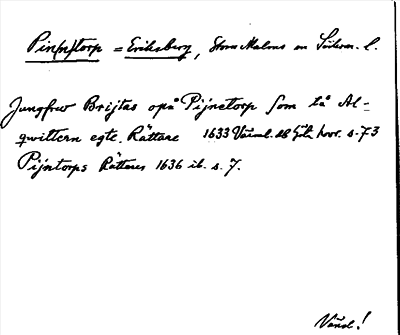 Pin(n)torp = Eriksberg, Stora Malms sn Söderm. l.
Jungfrw Brijtas opå Pijnetorp som lå Al=
qwittern egte. Rättare 1633 Vårsel. db Göta hovr. s. 73
Pijntorps Rättares 1636 ib. s. 7.
Vänd!